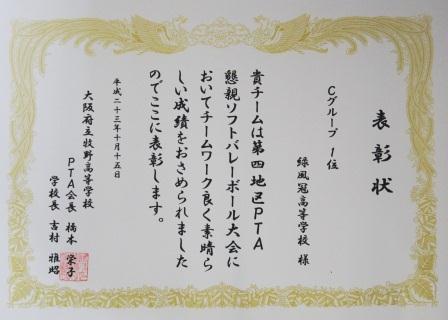 表彰状
Cグループ 1位
緑風冠高等学校 様
貴チームは第四地区PTA
懇親ソフトバレーボール大会に
おいてチームワーク良く素晴ら
しい成績をおさめられました
のでここに表彰します。
平成二十三年十月十五日
大阪府立牧野高等学校
PTA会長 橋本 栄子
学校長 吉村 雅昭